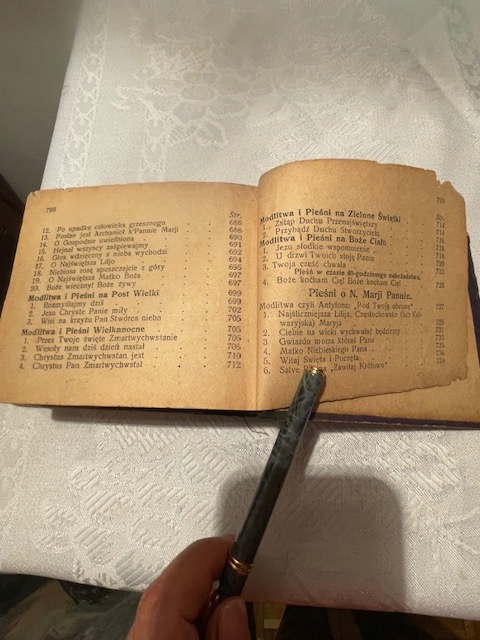 798
Str.
12. Po upadku człowieka grzesznego 688
13. Posłan jest Archanioł k'Pannie Marji 688
14. O Gospodzie uwielbiona 690
15. Hejnał wszyscy zaśpiewajmy 691
16. Głos wdzięczny z nieba wychodzi 692
17. O Najświętsza Liljo 694
18. Niebiosa rosę spuszczajcie z góry 695
19. O Najświętsza Matko Boża 697
20. Boże wieczny! Boże żywy 697
Modlitwa i Pieśni na Post Wielki 699
1. Rozmyślajmy dziś 699
2. Jezu Chryste Panie miły 702
3. Wisi na krzyżu Pan Stwórca nieba 703
Modlitwa i Pieśni Wielkanocne 705
1. Przez Twoje święte Zmartwychwstanie 706
2. Wesoły nam dziś dzień nastał 706
3. Chrystus Zmartwychwstan jest 710
4. Chrystus Pan Zmartwychwstał 712
799
Modlitwa i Pieśni na Zielone Świątki
Str.
1. Zstąp Duchu Przenajświętszy 714
2. Przybądź Duchu Stworzycielu 714
Modlitwa i Pieśni na Boże Ciało 716
1. Jezu słodkie wspomnienie
2. U drzwi Twoich stoję Panie
3. Twoja cześć chwała
Pieśń w czasie 40-godzinnego nabożeństwa.
4. Boże kocham Cię! Boże kocham Cię!
Pieśni o N. Marji Pannie.
Modlitwa czyli Antyfona: „Pod Twoją obronę"
1. Najśliczniejsza Lilija, Częstochowska (lub Kalwaryjska) Maryja
2. Ciebie na wieki wychwalać będziemy
3. Gwiazdo morza któraś Pana
4. Matko Niebieskiego Pana
5. Witaj Święta i Poczęta
6. Salve „Zawitaj Królowo"